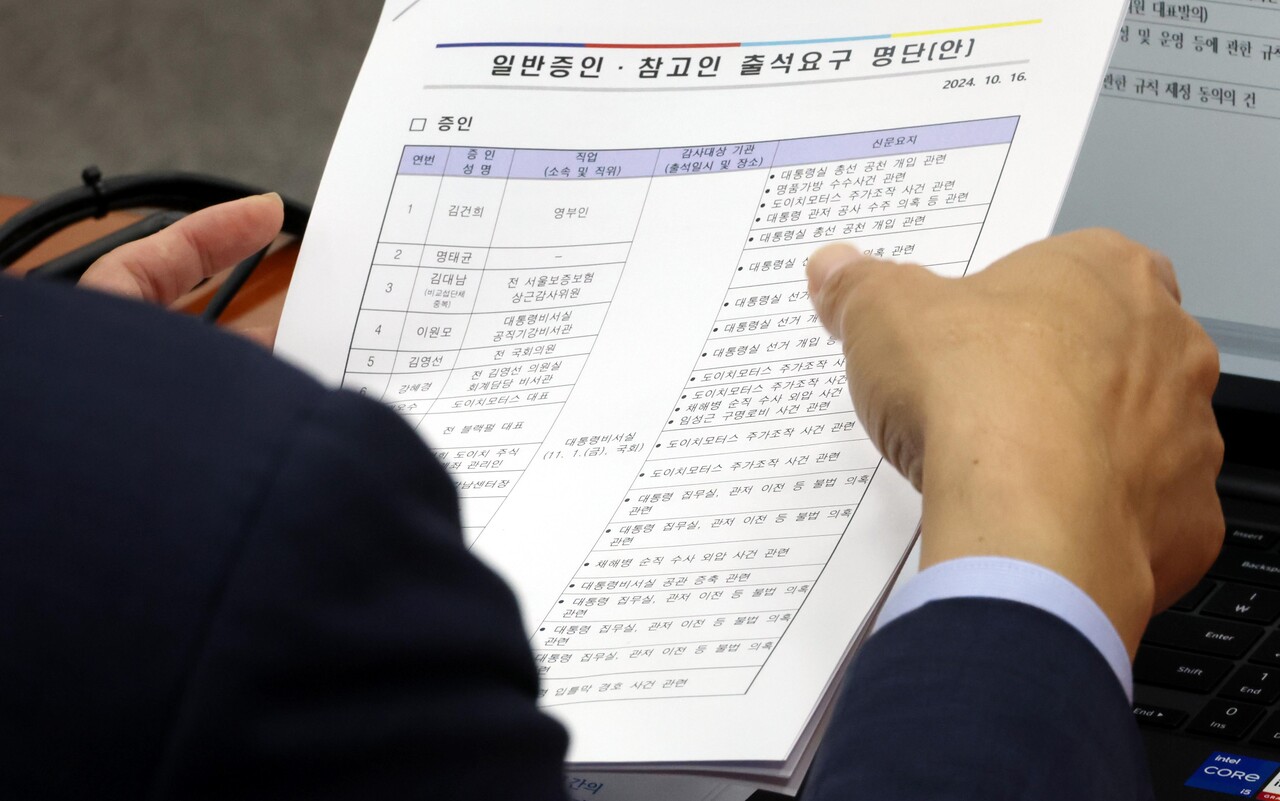 일반증인 · 참고인 출석요구 명단[안]
2024. 10. 16.
□ 증인
연번 증 인 성 명 직업 (소속 및 직위) 감사대상 기관 (출석일시 및 장소) 신문요지
1 김건희 영부인
• 대통령실 총선 공천 개입 관련
• 명품가방 수수사건 관련
• 도이치모터스 주가조작 사건 관련
• 대통령 관저 공사 수주 의혹 등 관련
2 명태균 –
• 대통령실 총선 공천 개입 관련
3 김대남 (비교섭단체 중복) 전 서울보증보험 상근감사위원
• 대통령실 의혹 관련
4 이원모 대통령비서실 공직기강비서관
• 대통령실 선거
5 김영선 전 국회의원
• 대통령실 선거 개
6 강혜경 전 김영선 의원실 회계담당 비서관
• 대통령실 선거 개입 등
도이치모터스 대표
• 도이치모터스 주가조작 사
전 블랙펄 대표
• 도이치모터스 주가조작 사건
• 채해병 순직 수사 외압 사건
• 임성근 구명로비 사건 관련
도이치 주식 관리인
• 도이치모터스 주가조작 사건 관련
강남센터장
• 도이치모터스 주가조작 사건 관련
대통령비서실
(11. 1.(금), 국회)
• 대통령 집무실, 관저 이전 등 불법 의혹 관련
• 대통령 집무실, 관저 이전 등 불법 의혹 관련
• 채해병 순직 수사 외압 사건 관련
• 대통령비서실 공관 증축 관련
• 대통령 집무실, 관저 이전 등 불법 의혹 관련
• 대통령 집무실, 관저 이전 등 불법 의혹 관련
대통령 집무실, 관저 이전 등 불법 의혹
입틀막 경호 사건 관련
대표발의)
및 운영 등에 관한 규칙
관한 규칙 제정 동의의 건
Insert
Backsp
W
Enter
Shift
1
End
0
Ins
End
intel
CORE
i5